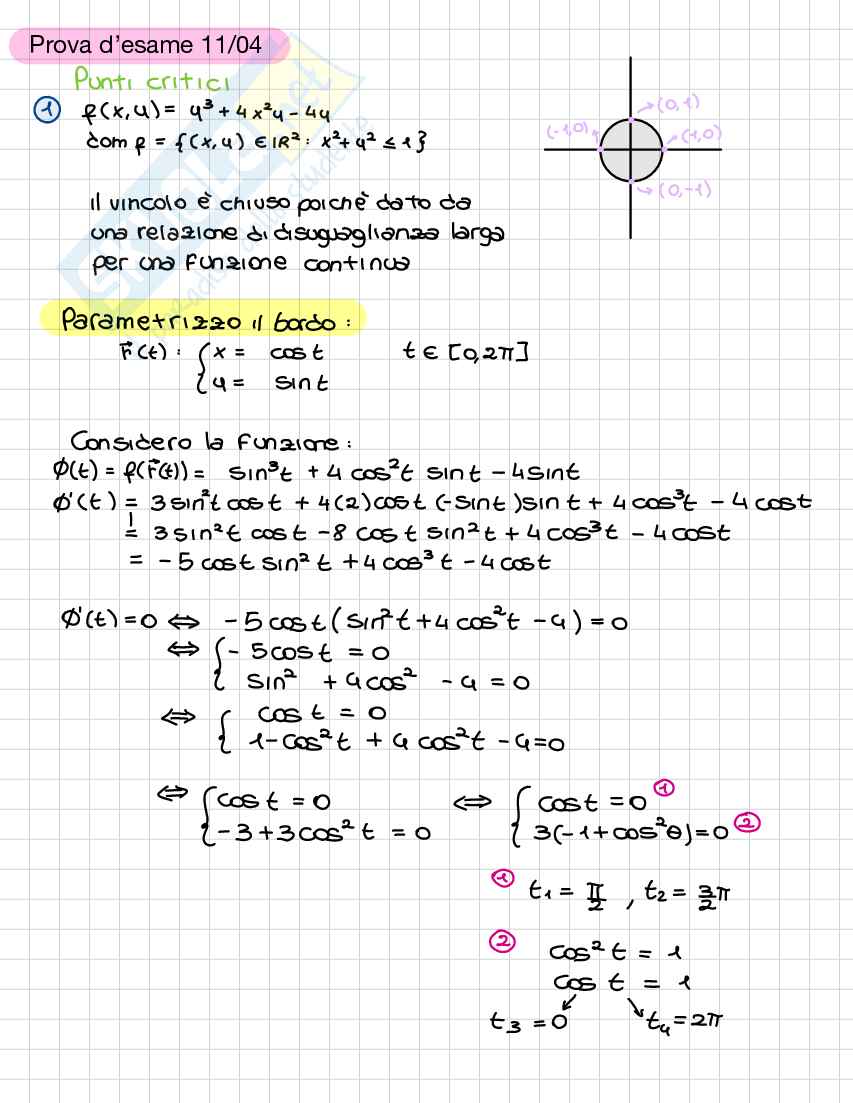 Prova d'esame 11/04
Punti critici
① f(x,y) = y³ + 4x²y - 4y
dom f = {(x,y) ∈ ℝ² : x² + y² ≤ 1}
(0,1)
(-1,0)
(1,0)
(0,-1)
Il vincolo è chiuso poichè dato da
una relazione di disuguaglianza larga
per una funzione continua
Parametrizzo il bordo:
r⃗(t) : { x = cos t   t ∈ [0,2π]
y = sin t
Considero la funzione:
φ(t) = f(r⃗(t)) = sin³t + 4cos²t sin t - 4sin t
φ'(t) = 3sin²t cos t + 4(2)cos t (-sin t) sin t + 4cos³t - 4cos t
= 3sin²t cos t - 8 cos t sin²t + 4cos³t - 4cos t
= -5cos t sin²t + 4cos³t - 4cos t
φ'(t) = 0 ⇔ -5cos t (sin²t + 4cos²t - 4) = 0
⇔ { -5cos t = 0
sin² + 4cos² - 4 = 0
⇔ { cos t = 0
1 - cos²t + 4cos²t - 4 = 0
⇔ { cos t = 0   ⇔ { cos t = 0 ①
-3 + 3cos²t = 0   3(-1 + cos²θ) = 0 ②
① t₁ = π/2 , t₂ = 3/2 π
② cos²t = 1
cos t = 1
t₃ = 0   t₄ = 2π